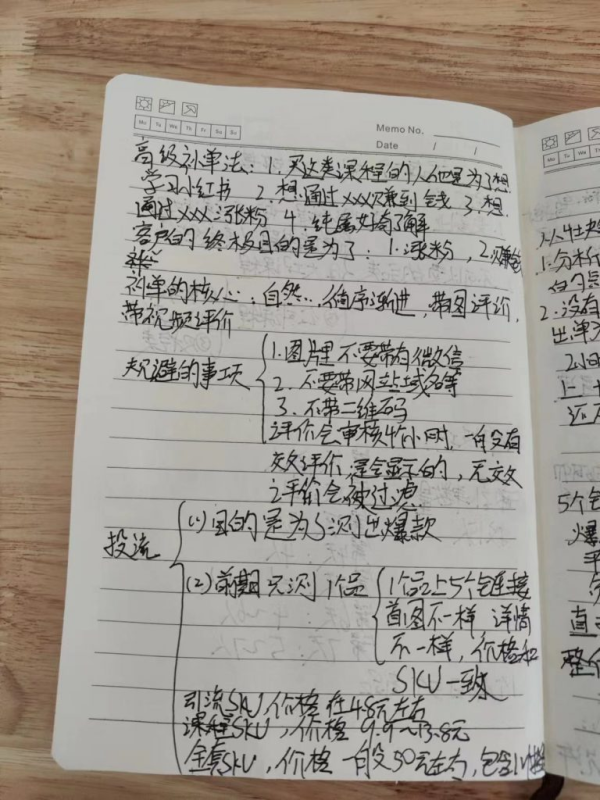 Mo Tu We Th Fr Sa Su
Memo No.
Date / /
高级补单法：1. 买这类课程的人他是为了想
学习小红书 2. 想通过xxx赚到钱 3. 想
通过xxx涨粉 4. 纯属好奇了解
客户的终极目的是为了：1. 涨粉，2. 赚钱
补单的核心：自然...循序渐进，带图评价，
带视频评价
规避的事项
1. 图片里不要带有微信
2. 不要带网站域名等
3. 不带二维码
评价会审核4个小时，一般没有
效评价是会显示的，无效
评价会被过虑
投流
(1) 目的是为了测出爆款
(2) 前期只测1个品
1个品上5个仓连接
首图不一样 详情
不一样，价格和
SKU一致
引流SKU，价格在4.8元左右
课程SKU，价格9.9～13.8元
全套SKU，价格一般30元左右，包含1V1
1. 分析
2. 没有
出单
5个仓
爆
直
整个